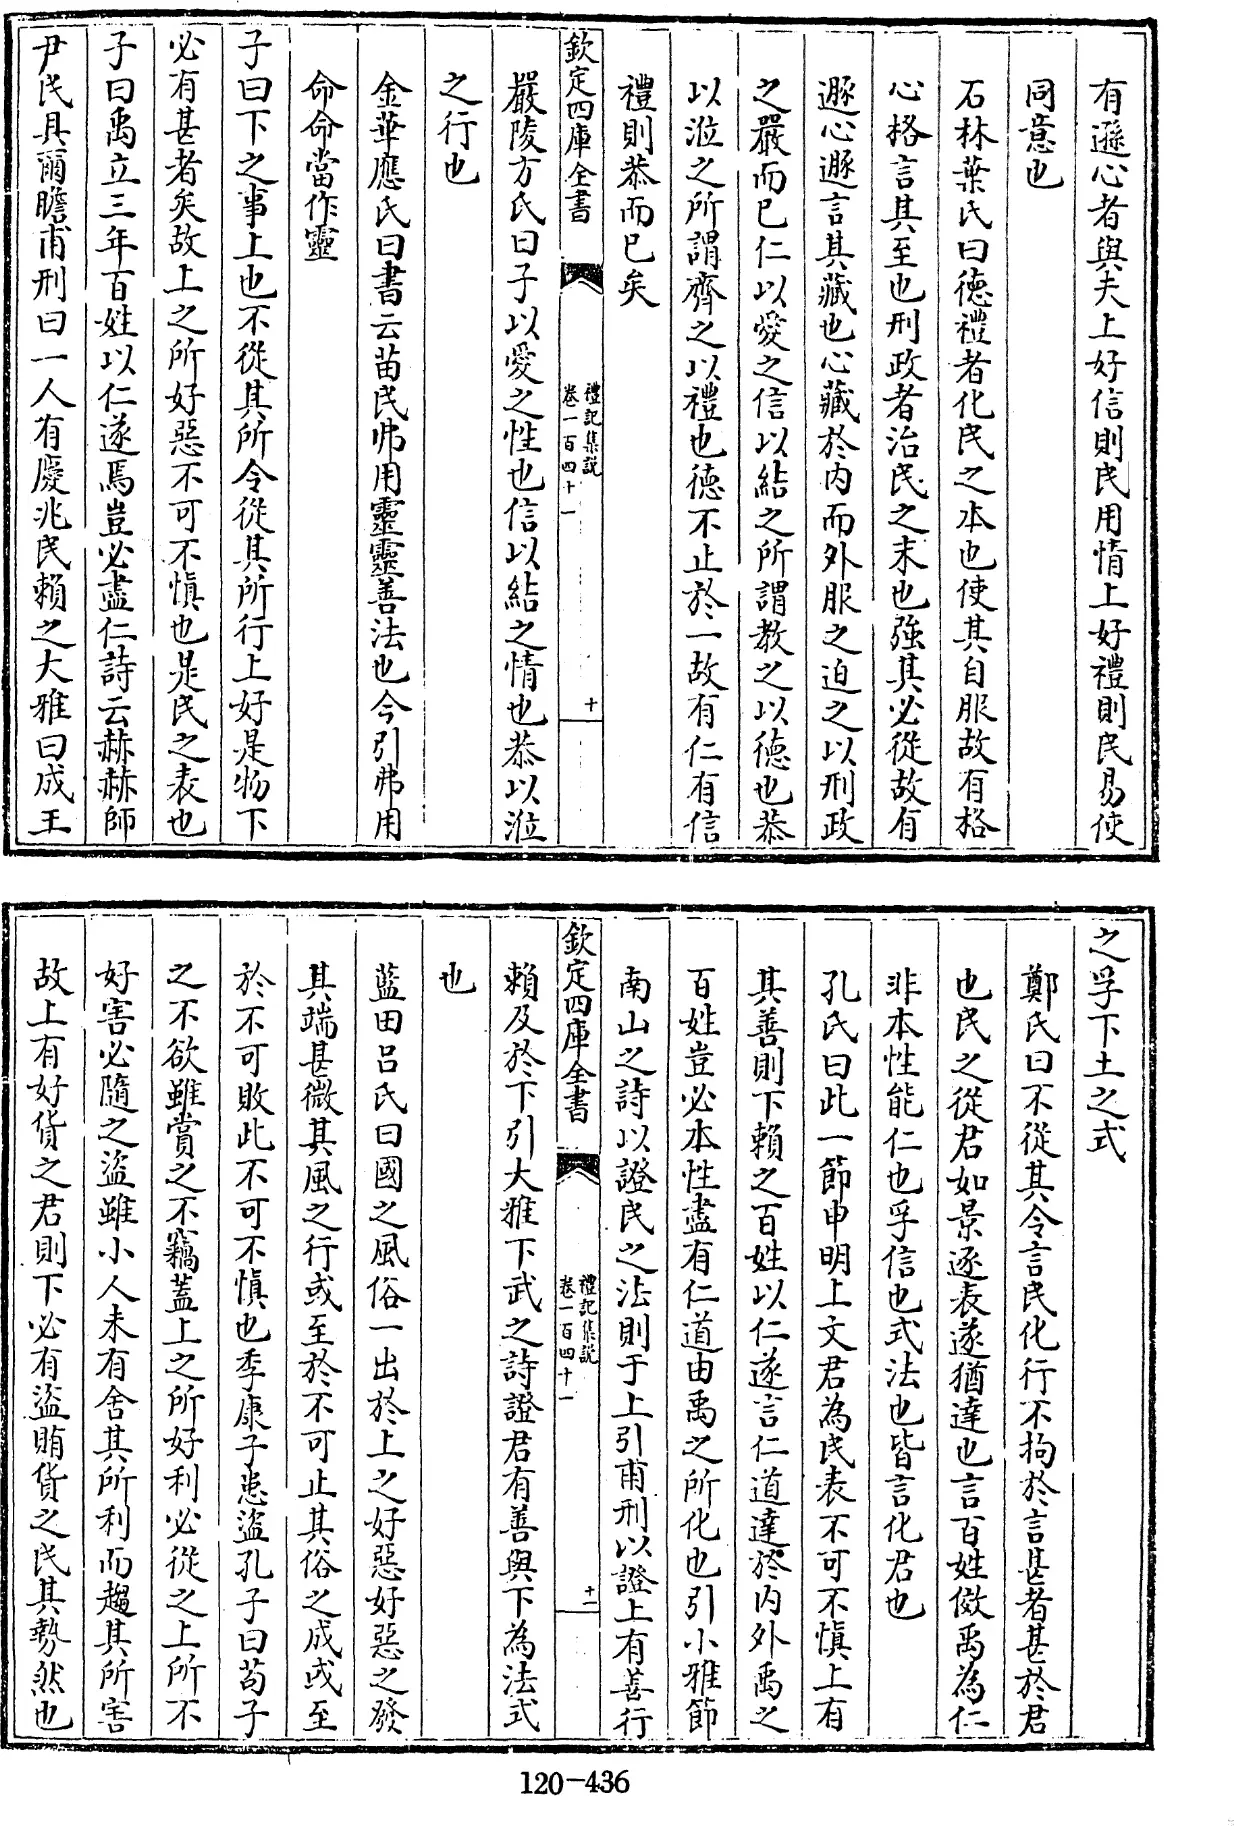 有遜心者與夫上好信則民用情上好禮則民易使
同意也
石林葉氏曰徳禮者化民之本也使其自服故有格
心格言其至也刑政者治民之末也強其必從故有
遯心遯言其藏也心藏於内而外服之迫之以刑政
之嚴而已仁以愛之信以結之所謂教之以徳也恭
以涖之所謂齊之以禮也徳不止於一故有仁有信
禮則恭而已矣
欽定四庫全書
禮記集説
卷一百四十一
十
嚴陵方氏曰子以愛之性也信以結之情也恭以涖
之行也
金華應氏曰書云苗民弗用靈靈善法也今引弗用
命命當作靈
子曰下之事上也不從其所令從其所行上好是物下
必有甚者矣故上之所好惡不可不慎也是民之表也
子曰禹立三年百姓以仁遂焉豈必盡仁詩云赫赫師
尹民具爾瞻甫刑曰一人有慶兆民賴之大雅曰成王
之孚下土之式
鄭氏曰不從其令言民化行不拘於言甚者甚於君
也民之從君如景逐表遂猶達也言百姓傚禹為仁
非本性能仁也孚信也式法也皆言化君也
孔氏曰此一節申明上文君為民表不可不慎上有
其善則下賴之百姓以仁遂言仁道達於内外禹之
百姓豈必本性盡有仁道由禹之所化也引小雅節
南山之詩以證民之法則于上引甫刑以證上有善行
欽定四庫全書
禮記集説
卷一百四十一
十一
賴及於下引大雅下武之詩證君有善與下為法式
也
藍田呂氏曰國之風俗一出於上之好惡好惡之發
其端甚微其風之行或至於不可止其俗之成或至
於不可敗此不可不慎也季康子患盜孔子曰茍子
之不欲雖賞之不竊蓋上之所好利必從之上所不
好害必隨之盜雖小人未有舍其所利而趨其所害
故上有好貨之君則下必有盜賄貨之民其勢然也
120-436